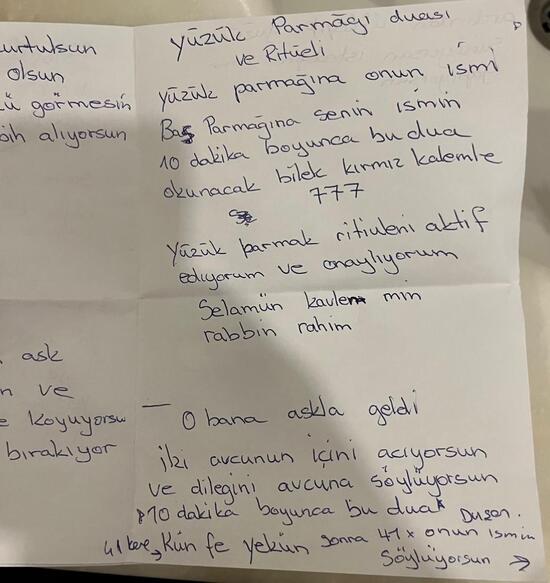 urtulsun
olsun
ü görmesin
bih alıyorsun
ask
n ve
e koyuyorsu
bırakıyor
yüzük Parmağı duası
ve Ritüeli
yüzük parmağına onun ismi
Baş Parmağına senin ismin
10 dakika boyunca bu dua
okunacak bilek kırmız kalemle
777
Yüzük parmak ritiuleni aktif
ediyorum ve onaylıyorum
Selamün kavlem min
rabbin rahim
— O bana askla geldi
iki avcunun içini acıyorsun
ve dileğini avcuna söylüyorsun
10 dakika boyunca bu duak Duson.
41 kere Kün fe yekün sonra 41x onun ismin
söylüyorsun →